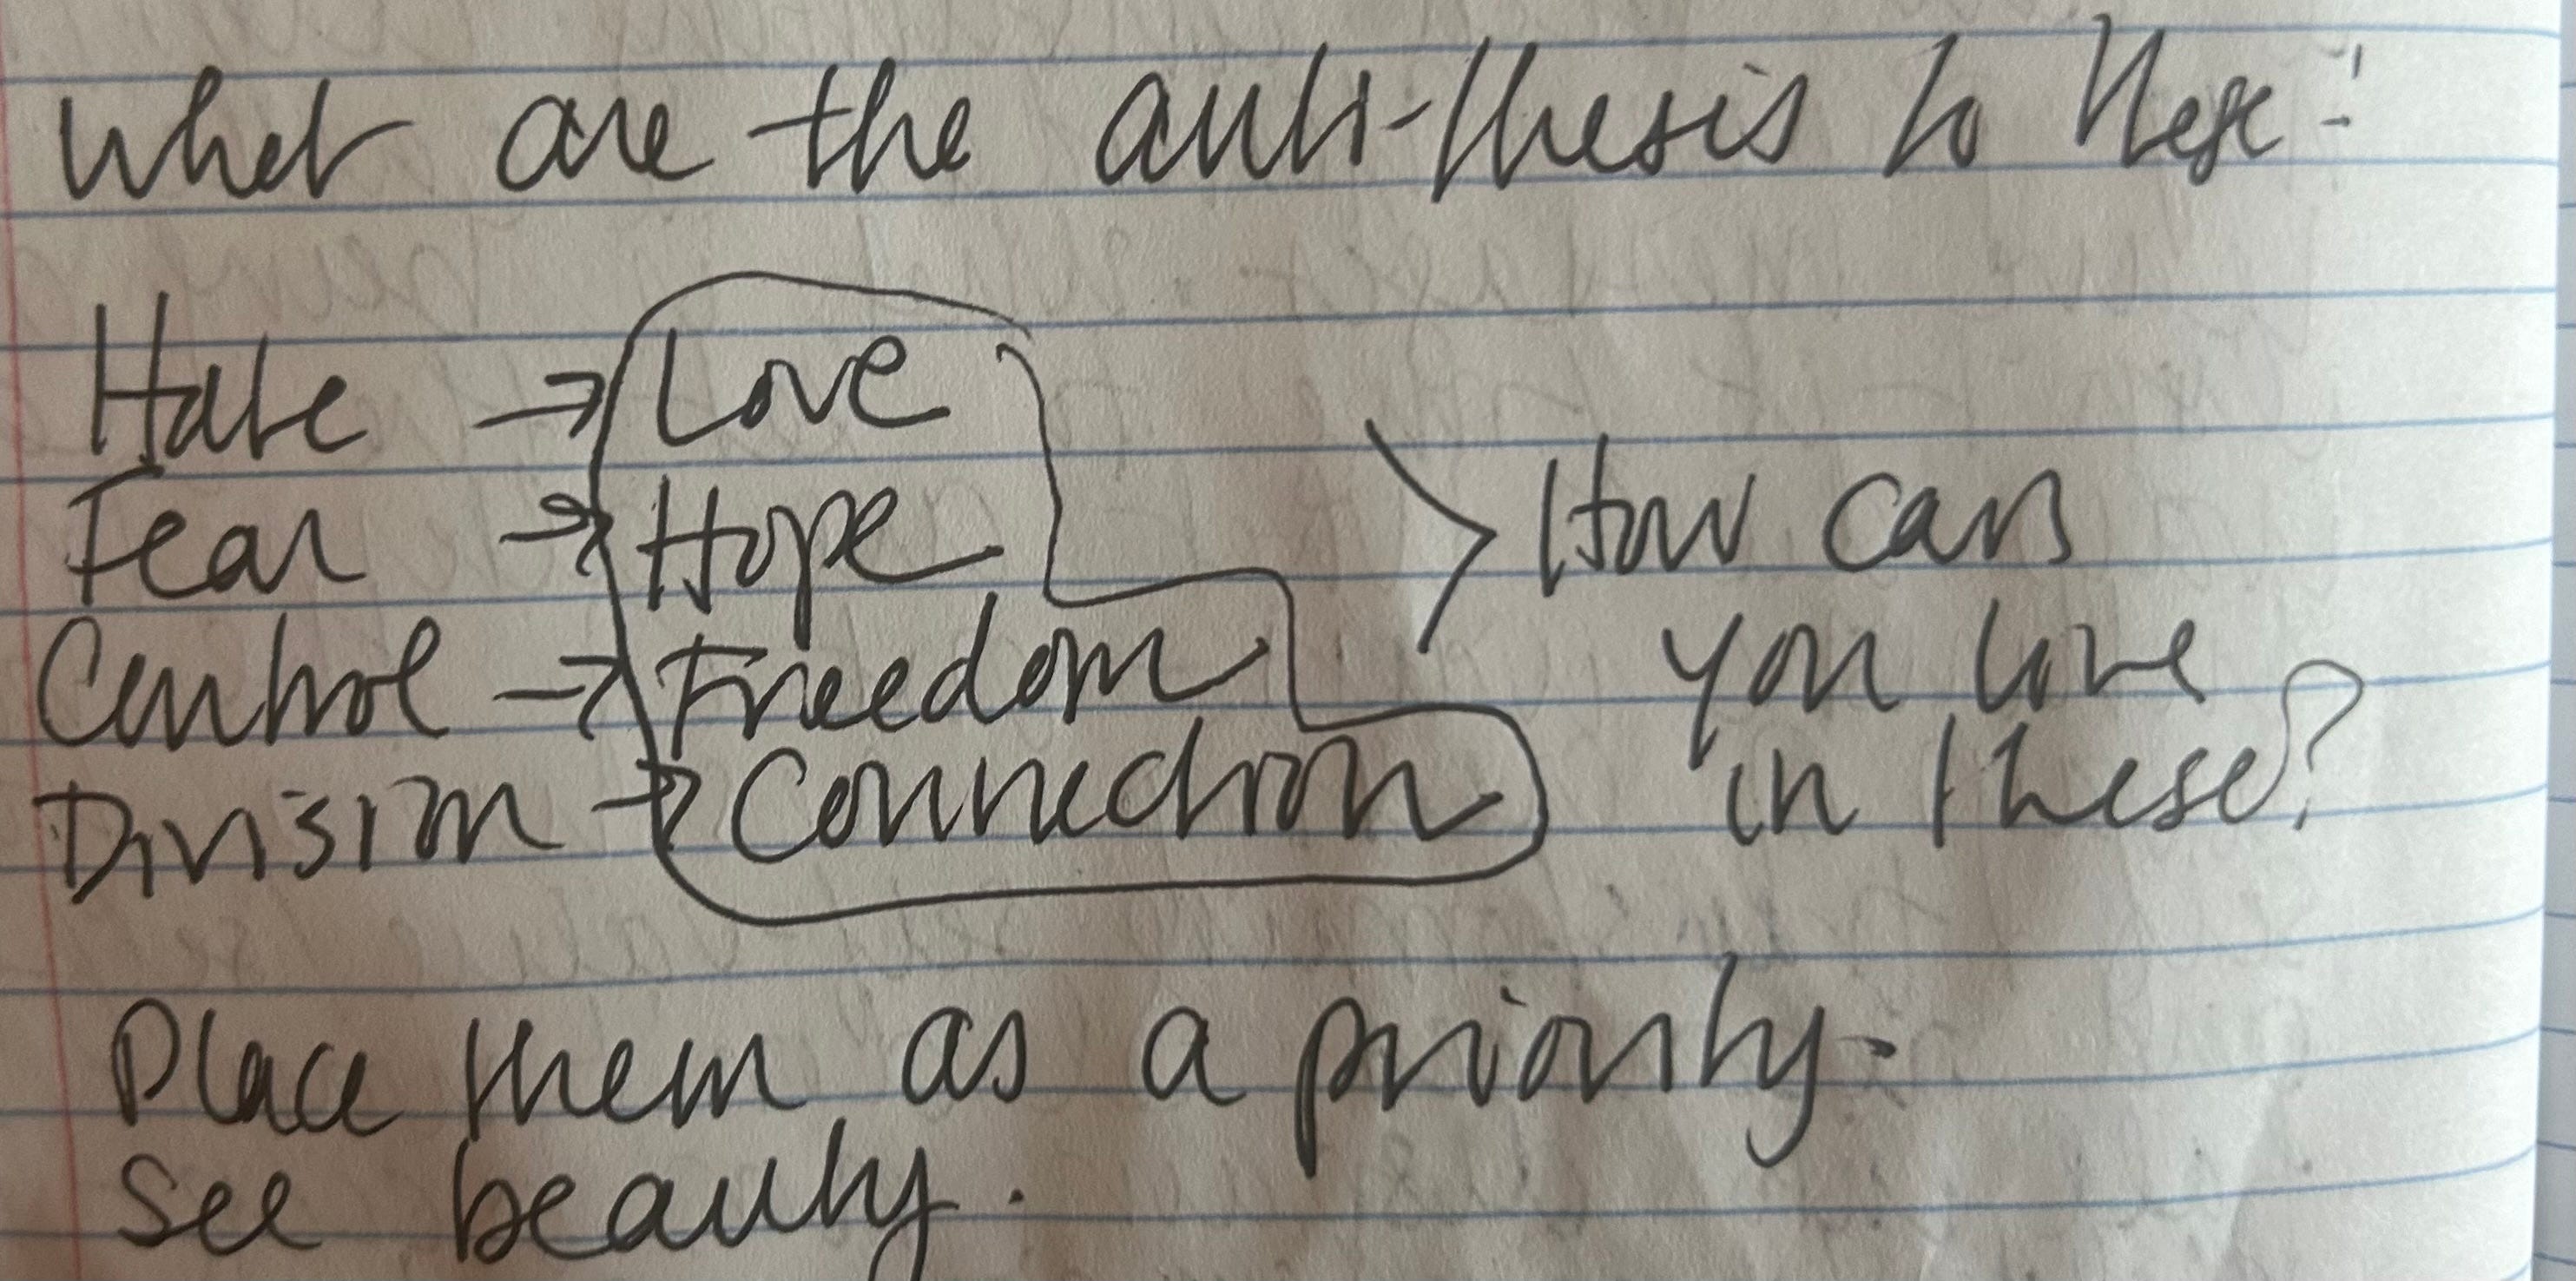 What are the anti-thesis to these:
Hate → Love
Fear → Hope
Control → Freedom
Division → Connection
> How can
you live
in these?
Place them as a priority.
See beauty.